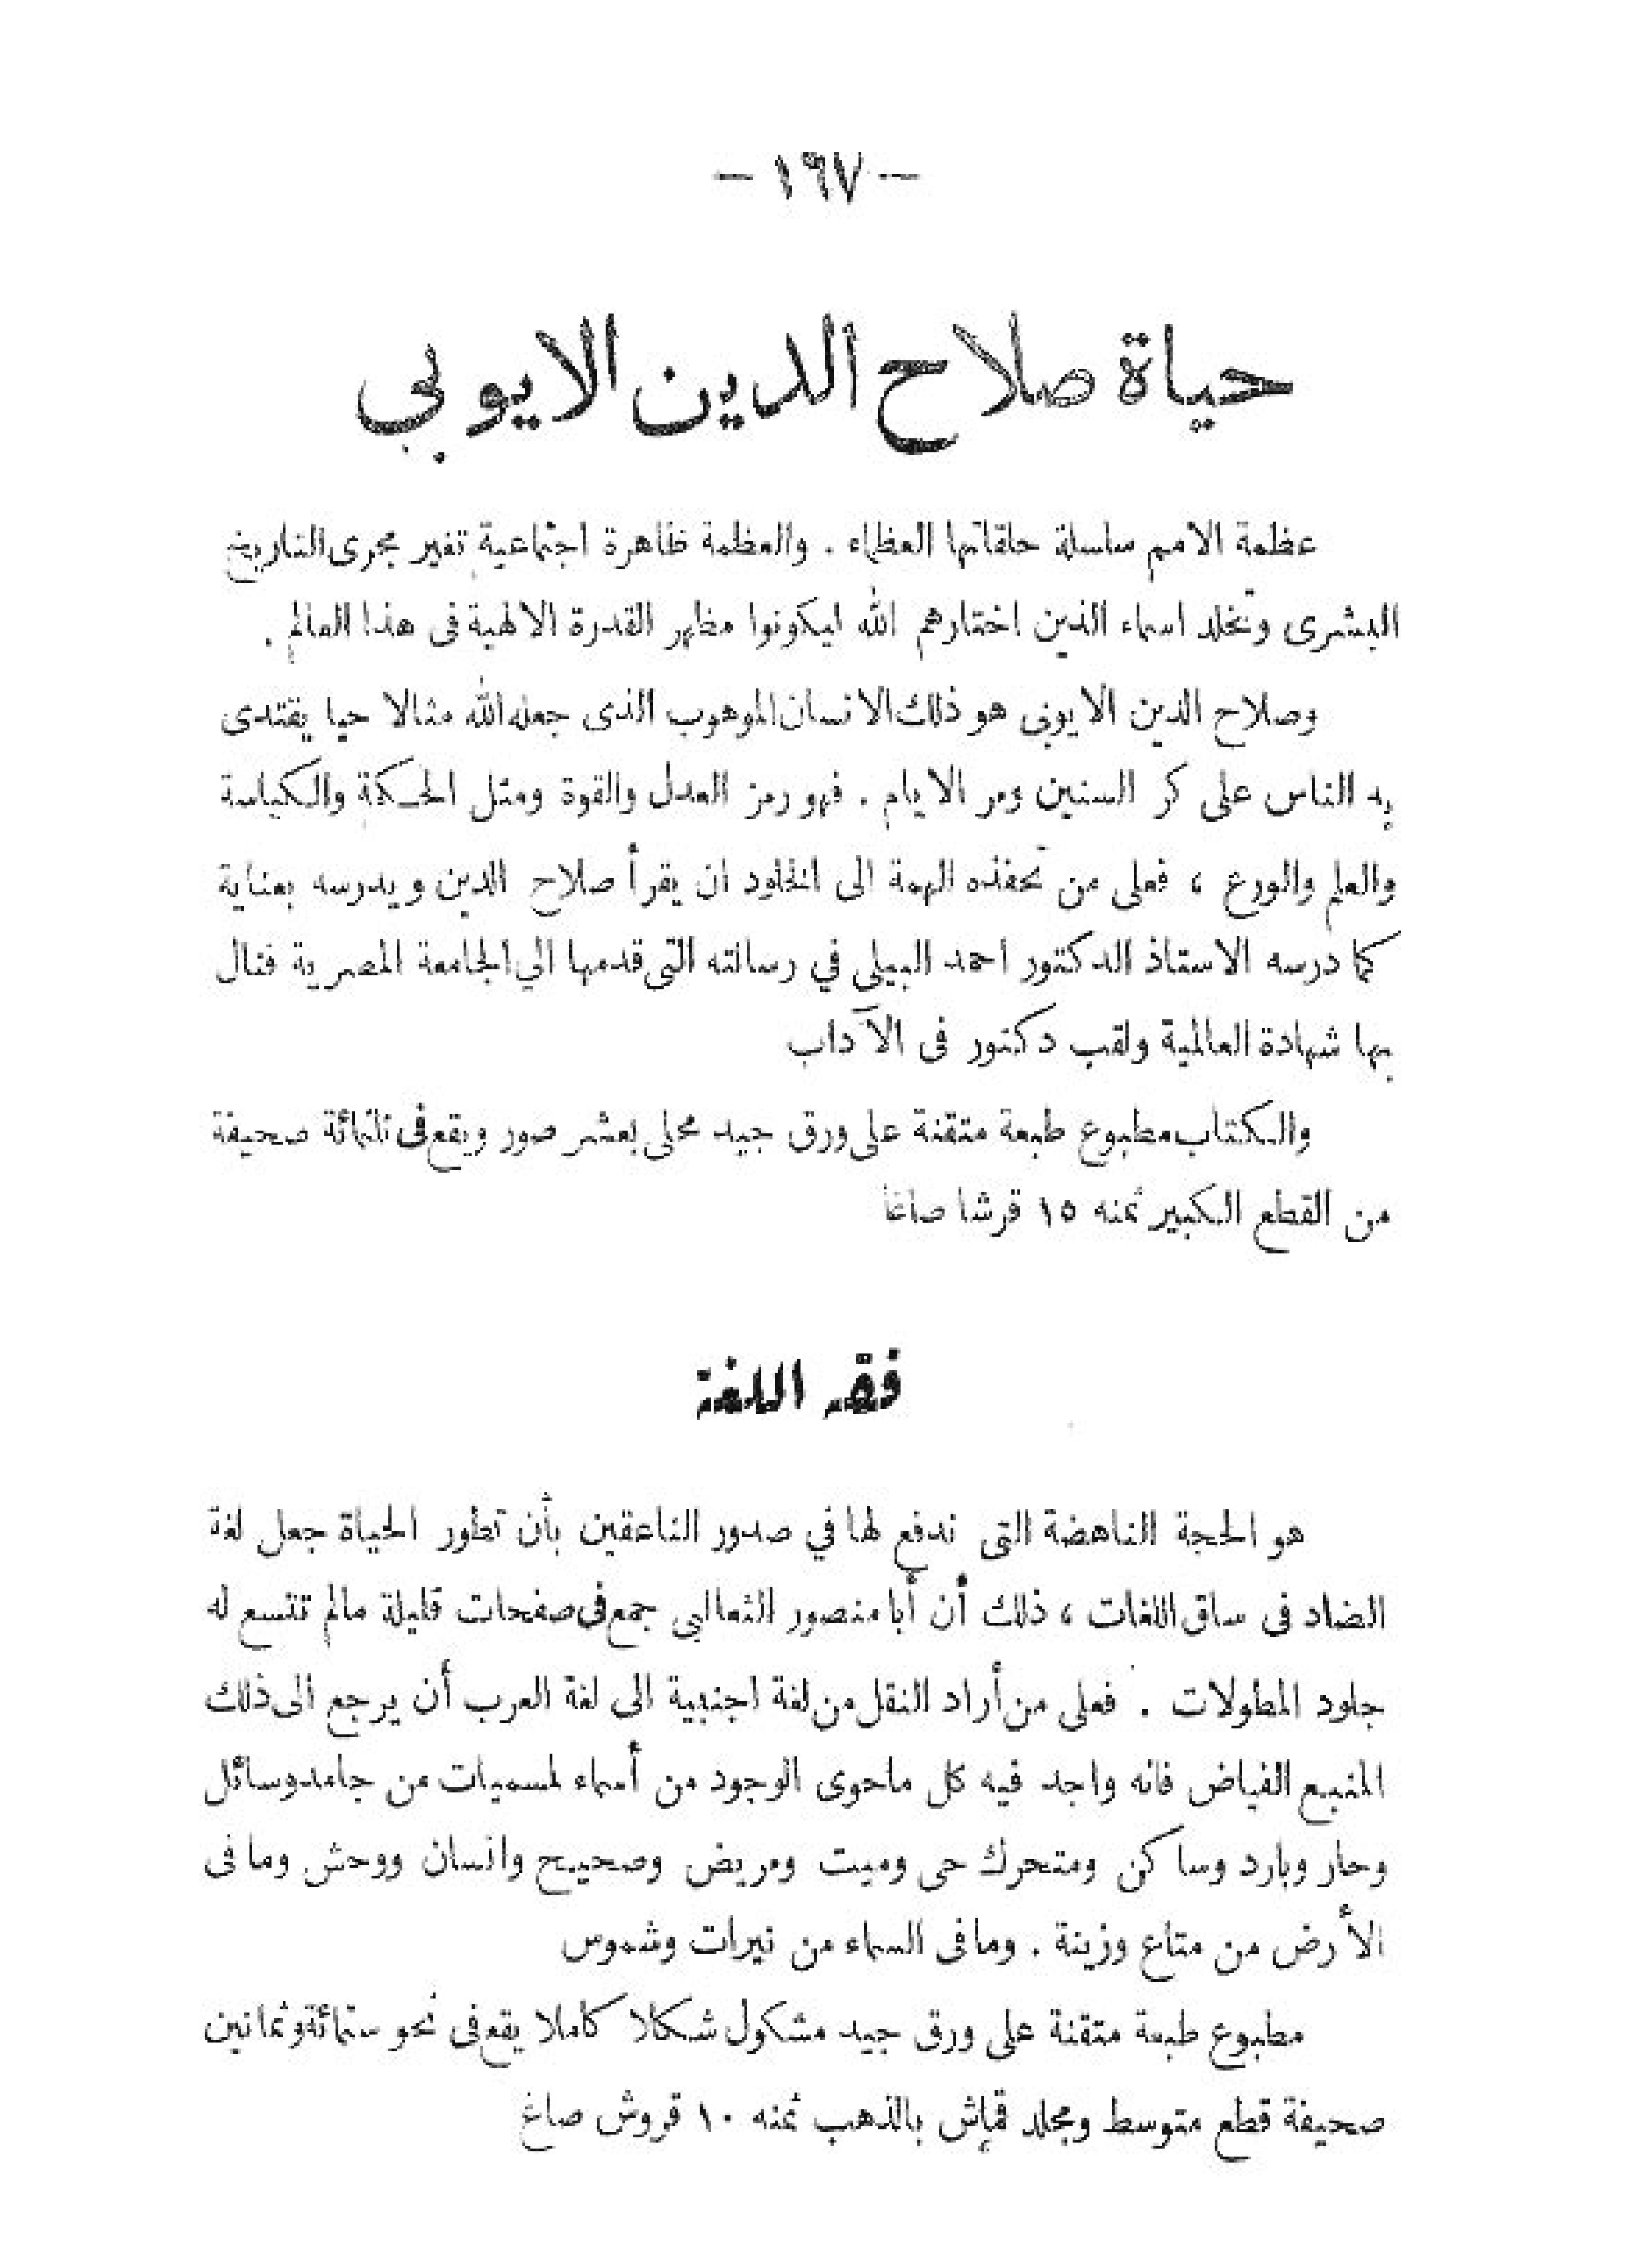 — ١٦٧ —
حياة صلاح الدين الايوبي
عظمة الامم سلسلة حلقاتها العظماء . والعظمة ظاهرة اجتماعية تغير مجرى التاريخ
البشرى وتخلد اسماء الذين اختارهم الله ليكونوا مظهر القدرة الالهية فى هذا العالم .
وصلاح الدين الايوبى هو ذلك الانسان الموهوب الذى جعله الله مثالا حيا يقتدى
به الناس على كر السنين ومر الايام . فهو رمز العدل والقوة ومثل الحكمة والكياسة
والعلم والورع ، فعلى من تحفذه الهمة الى الخلود ان يقرأ صلاح الدين ويدرسه بعناية
كما درسه الاستاذ الدكتور احمد البيلى في رسالته التى قدمها الي الجامعة المصرية فنال
بها شهادة العالمية ولقب دكتور فى الآداب
والكتاب مطبوع طبعة متقنة على ورق جيد محلى بعشر صور ويقع فى ثلثمائة صحيفة
من القطع الكبير ثمنه ١٥ قرشا صاغا
فقه اللغة
هو الحجة الناهضة التى ندفع لها في صدور الناعقين بأن تطور الحياة جعل لغة
الضاد فى ساق اللغات ، ذلك أن أبا منصور الثعالبي جمع فى صفحات قليلة مالم تتسع له
جلود المطولات . فعلى من أراد النقل من لغة اجنبية الى لغة العرب أن يرجع الى ذلك
المنبع الفياض فانه واجد فيه كل ماحوى الوجود من أسماء لمسميات من جامد وسائل
وحار وبارد وساكن ومتحرك حى وميت ومريض وصحيح وانسان ووحش وما فى
الأرض من متاع وزينة . وما فى السماء من نيرات وشموس
مطبوع طبعة متقنة على ورق جيد مشكول شكلا كاملا يقع فى نحو ستمائة وثمانين
صحيفة قطع متوسط ومجلد قماش بالذهب ثمنه ١٠ قروش صاغ